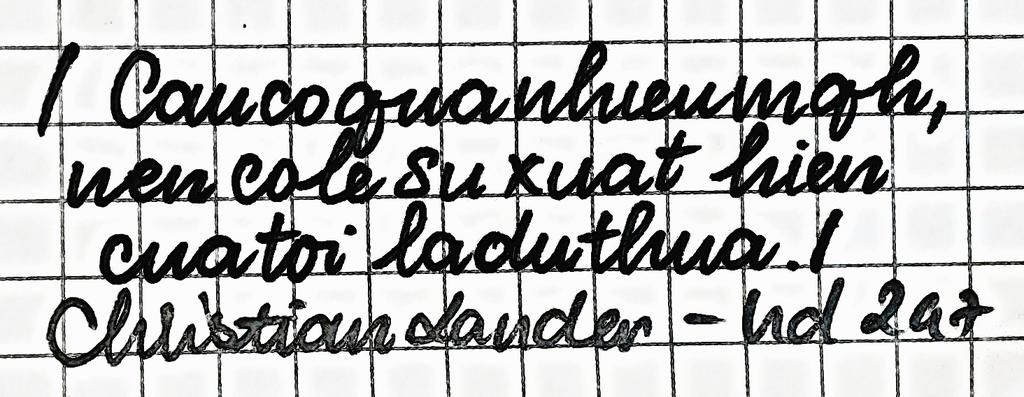 / Caucoquanhieumqh,
nen cole su xuat hien
cuatoi laduthua./
Christian Lander - hd 2a7